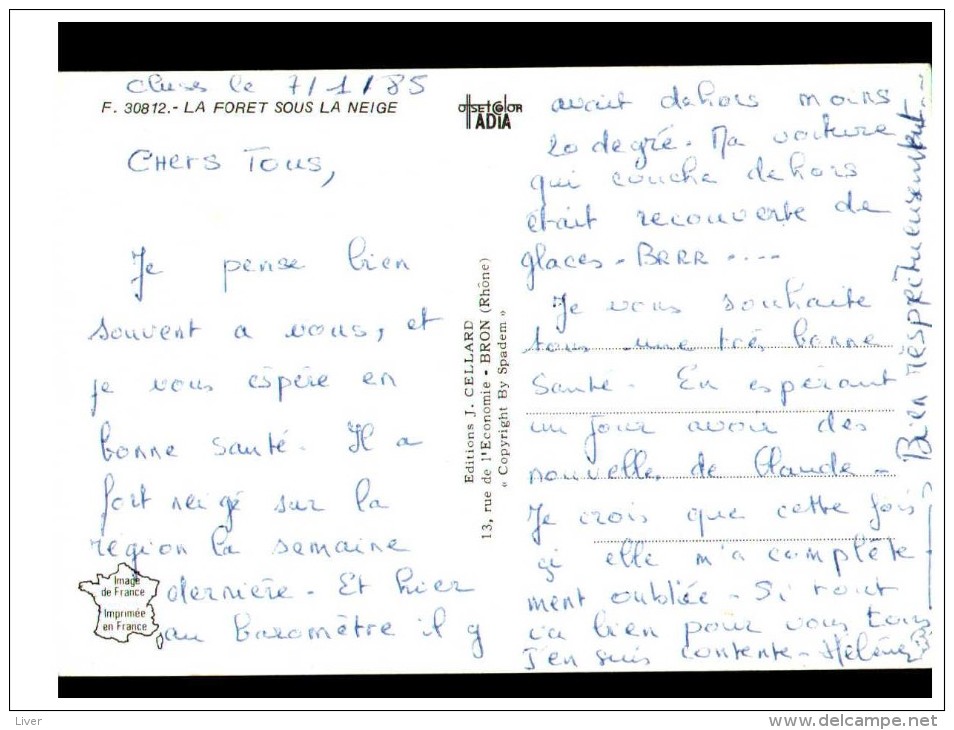 Cluses le 7/1/85
F. 30812.- LA FORET SOUS LA NEIGE
OFFSET COLOR
ADIA
CHers Tous,
Je pense bien
souvent a vous, et
je vous espère en
bonne santé. Il a
fort neigé sur la
région la semaine
dernière. Et hier
au baromètre il y
Image
de France
Imprimée
en France
Editions J. CELLARD
13, rue de l'Economie - BRON (Rhône)
« Copyright By Spadem »
avait dehors moins
20 degré. Ma voiture
qui couche dehors
était recouverte de
glaces - BRRR ....
Je vous souhaite
tous une trés bonne
santé. En espérant
un jour avoir des
nouvelles de Claude -
Je crois que cette fois
çi elle m'a complète
ment oubliée - Si tout
va bien pour vous tous
J'en suis contente - Hélène
Bien réspectueusement.-
Liver
www.delcampe.net